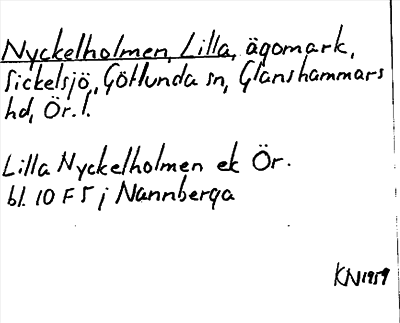 Nyckelholmen, Lilla, ägomark,
Sickelsjö, Götlunda sn, Glanshammars
hd, Ör. l.
Lilla Nyckelholmen ek Ör.
bl. 10 F 5 j Nannberga
KN 1959